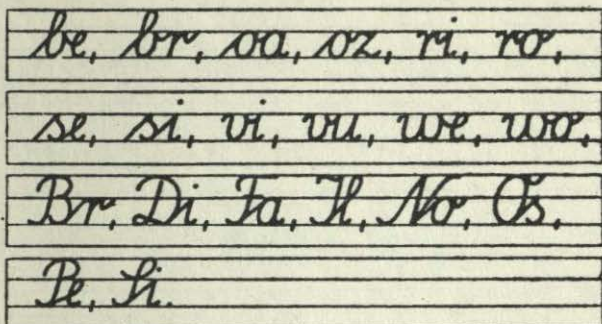 be, br, oa, oz, ri, ro,
se, si, vi, vu, we, wo,
Br, Di, Fa, No, Os,
Pe, Si.